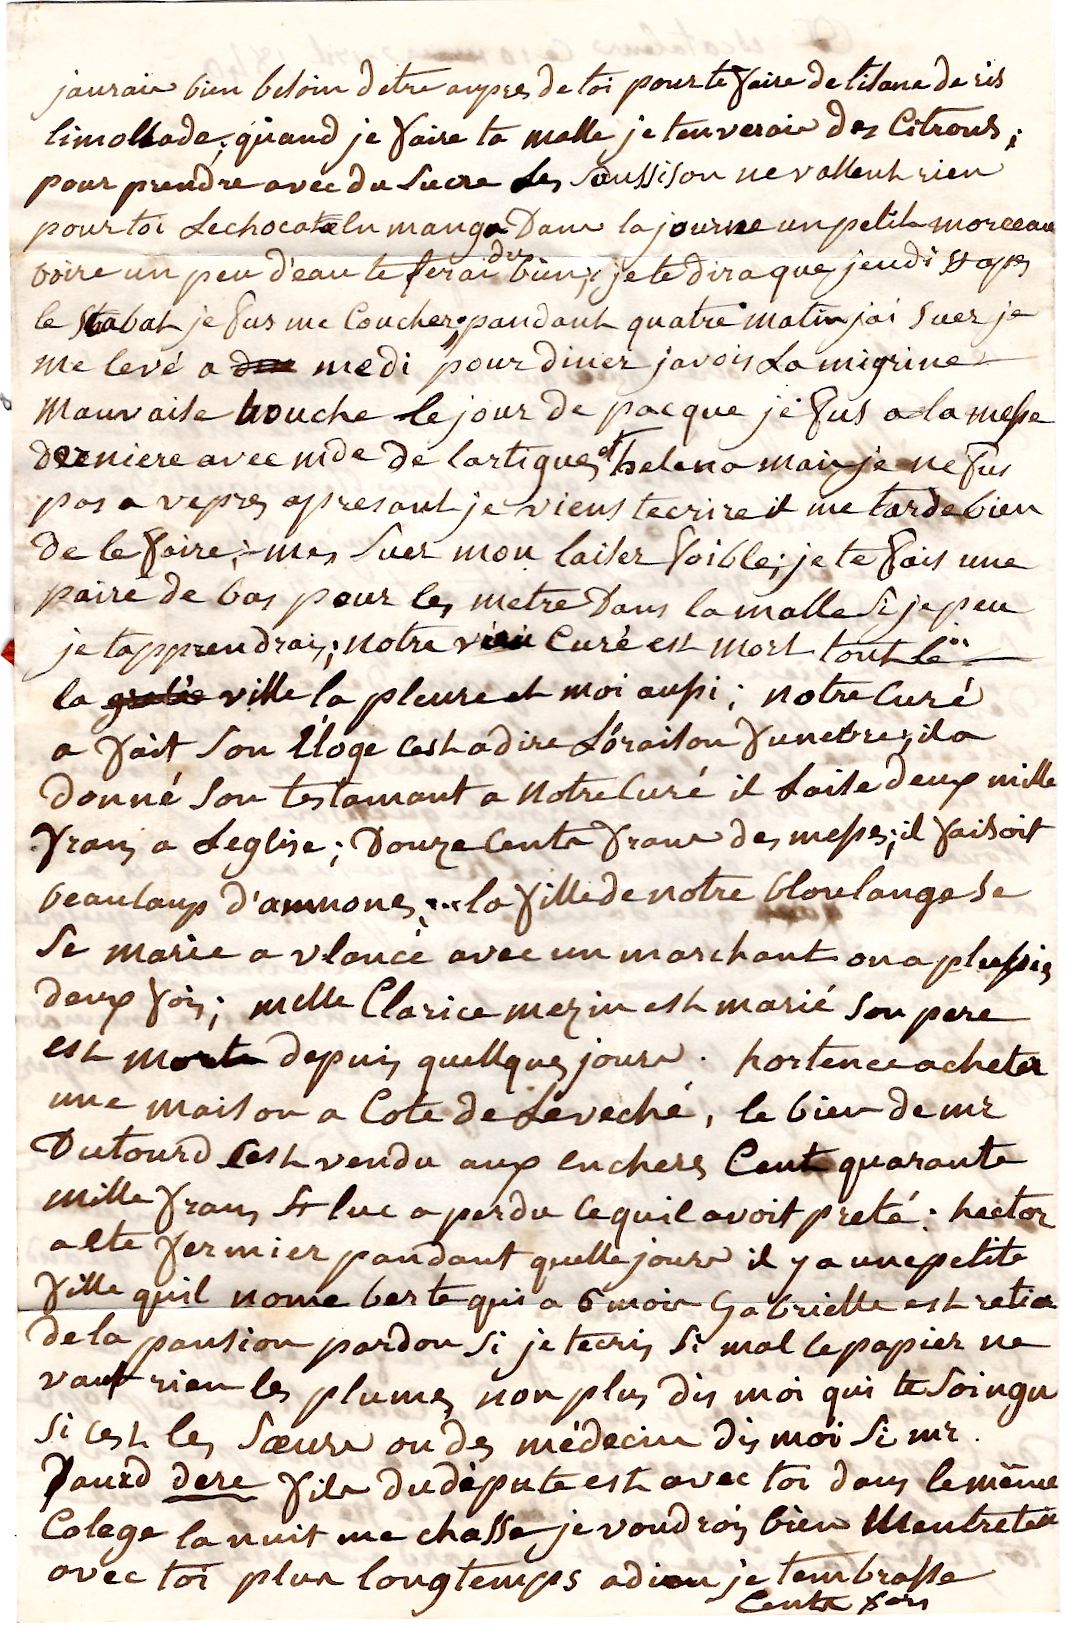 jauraie bien besoin detre aupres de toi pour te faire de titane de ris
limollade; quand je faire ta malle je tenveraie des Citrons;
pour prendre avec du Sucre Les Soussison ne vallent rien
pour toi Le chocatelu mange Dans la journe un petit morceau
boire un peu d'eau te ferai du bien; je te diraque jeudi St apres
le Stabat je fus me Coucher; pandant quatre matin jai Suer je
me levé a medi pour diner javois La migrine
mauvaise bouche le jour de pacque je fus a la messe
derniere avec mde de lartigues et helena mais je ne fus
pas a vepres apresant je viens tecrire il me tarde bien
de le faire; mes Suer mon laiser foible; je te fais une
paire de bas pour les metre Dans la malle Si je peu
je tapprendrai; notre vieu Curé est mort tout le
la ville la pleure et moi aussi; notre Curé
a fait Son Éloge cest a dire L'oraison funebre; il a
donné Son testamant a notre Curé il Laise deux mille
frans a Leglise; Douze Cents frans des messes; il faisoit
beaucoup d'aumones; la fille de notre bloulange Se
Se marie a vlancé avec un marchant on a plussis
deux fois; melle Clarice mezin est marié Son pere
est morte depuis quellques jours. hortence acheter
une maison a Cote de Leveché, le bien de mr
Dutourd Cest vendu aux encheres Cent quarante
mille frans St luc a perdu ce quil avoit preté: hector
a ete fermier pandant quelle jours il y a une petite
fille quil nome berte qui a 6 mois Gabrielle est retire
de la pansion pardon Si je tecris Si mal le papier ne
vaut rien les plumes non plus dis moi qui te Soingn
Si cest les Sœurs ou des médecin dis moi Si mr.
Daurd dere fils du députe est avec toi dans le même
Colege la nuit me chasse je voudrois bien Mentretenir
avec toi plus longtemps adieu je tembrasse
Cents fois